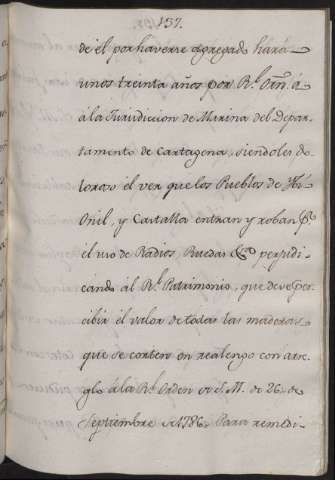 157.
de él por haverse agregado hará
unos treinta años por Rl. Orn. á
á la Jurisdiccion de Marina del Depar-
tamento de Cartagena, siendoles do-
loroso el ver que los Pueblos de Hi
Onil, y Castalla entran y roban pa.
el uso de Radios, Ruedas &a. perjudi-
cando al Rl. Patrimonio, que deve per-
cibir el valor de todas las maderas
que se corten en realengo con arre-
glo á la Rl. Orden de S. M. de 26 de
Septiembre de 1786. Para remedi-